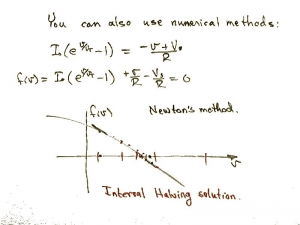 You can also use numerical methods:
I₀(e^(v/v_T) -1) = (-v + Vₛ)/R
f(v) = I₀(e^(v/v_T) -1) + v/R - Vₛ/R = 0
f(v)
Newton's method.
v
Interval Halving solution.